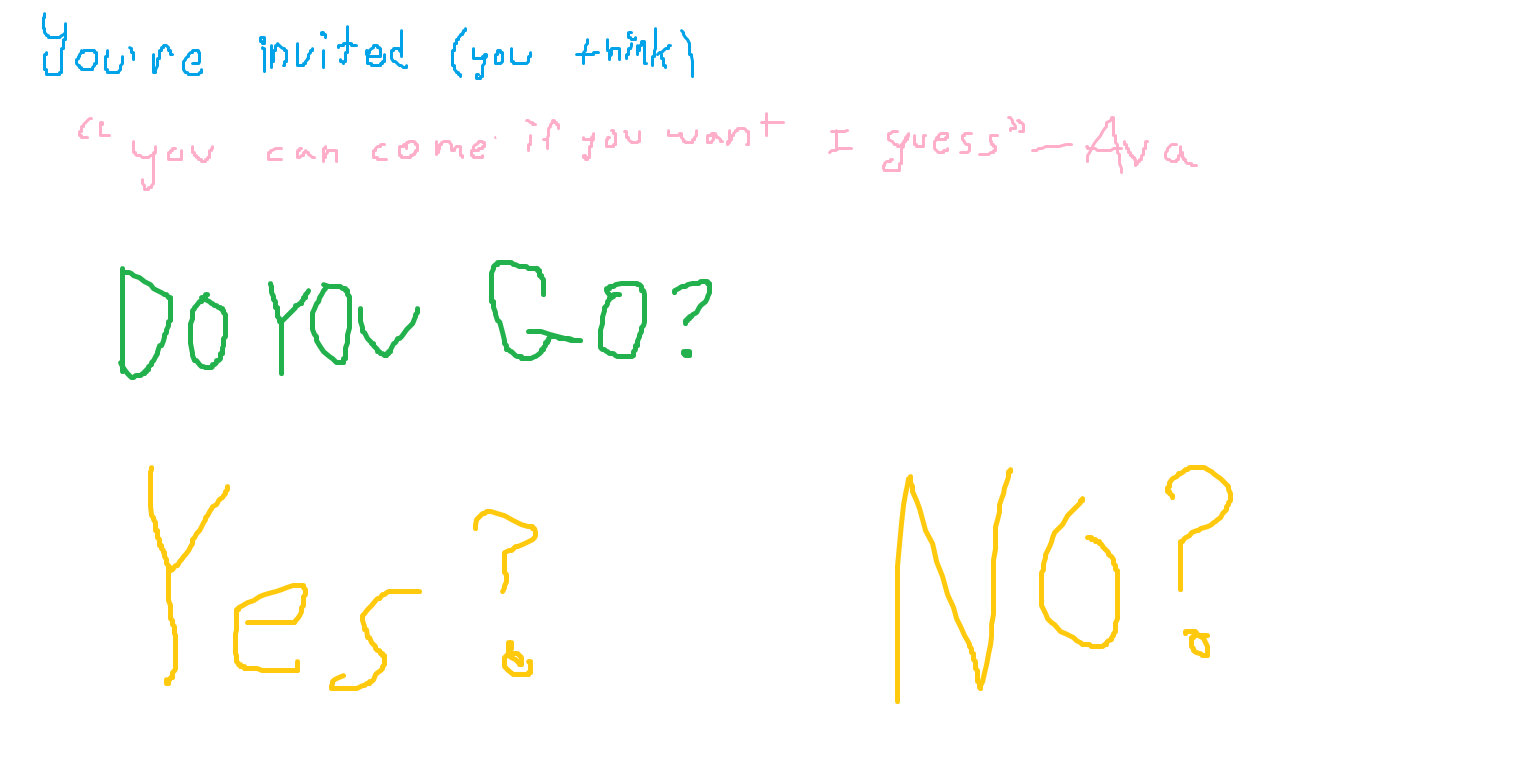 You're invited (you think)
"you can come if you want I guess" - Ava
DO YOU GO?
Yes? NO?